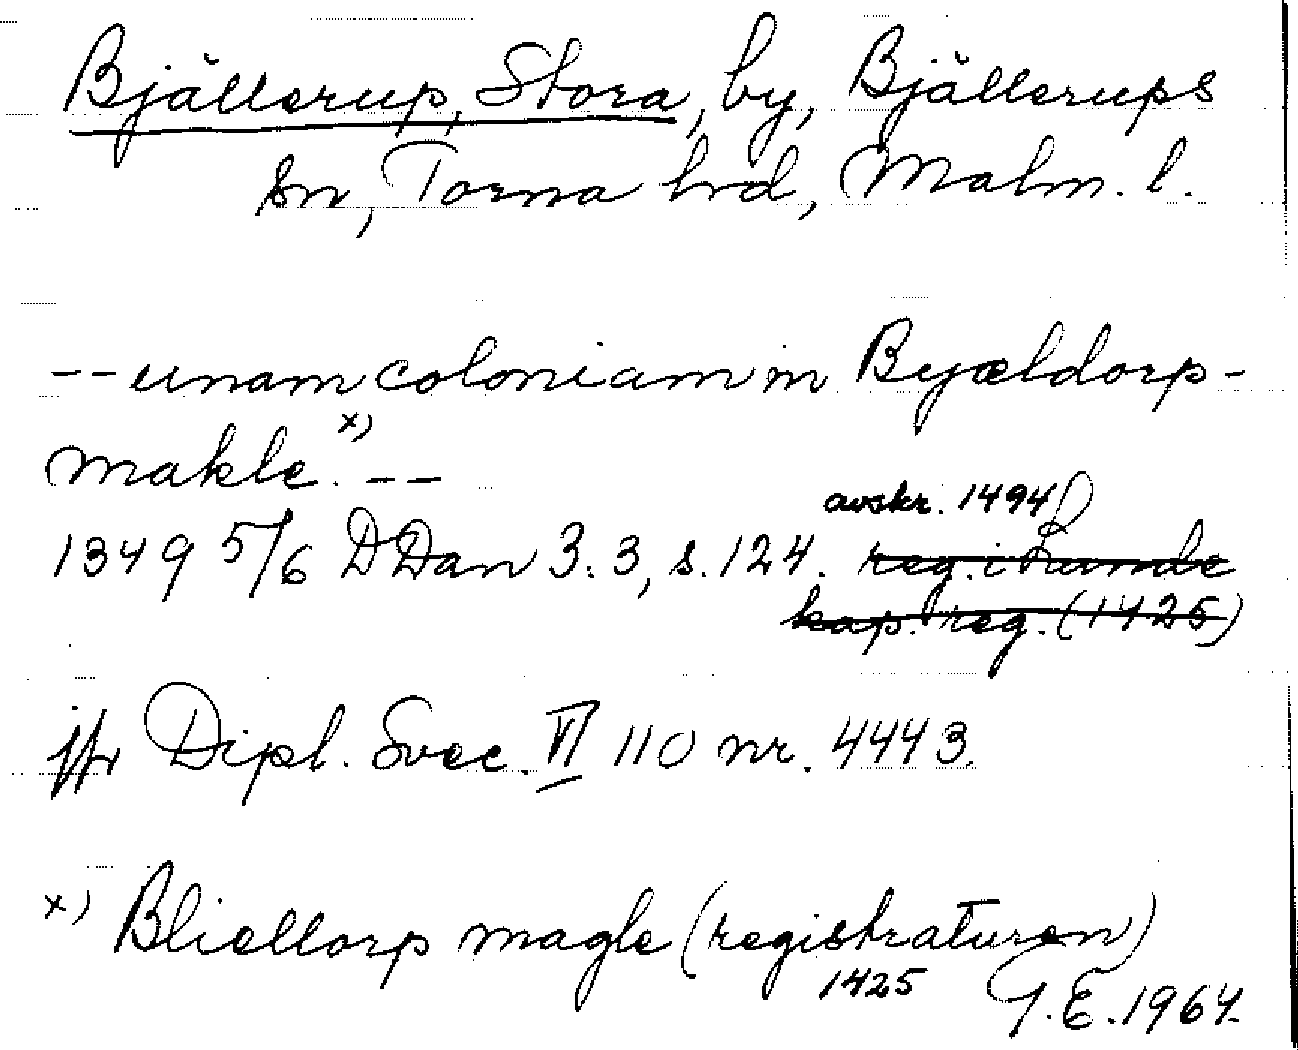 Bjällerup, Stora, by, Bjällerups
sn, Torna hrd, Malm. l.
-- unam coloniam in Byældorp-
makle. x) --
avskr. 1494
1349 5/6 DDan 3.3, s. 124. reg. i Lunde
kap. reg. (1425)
jfr Dipl. Svec. VI 110 nr. 4443.
x) Bliellorp magle (registraturen)
1425 G.E. 1964.